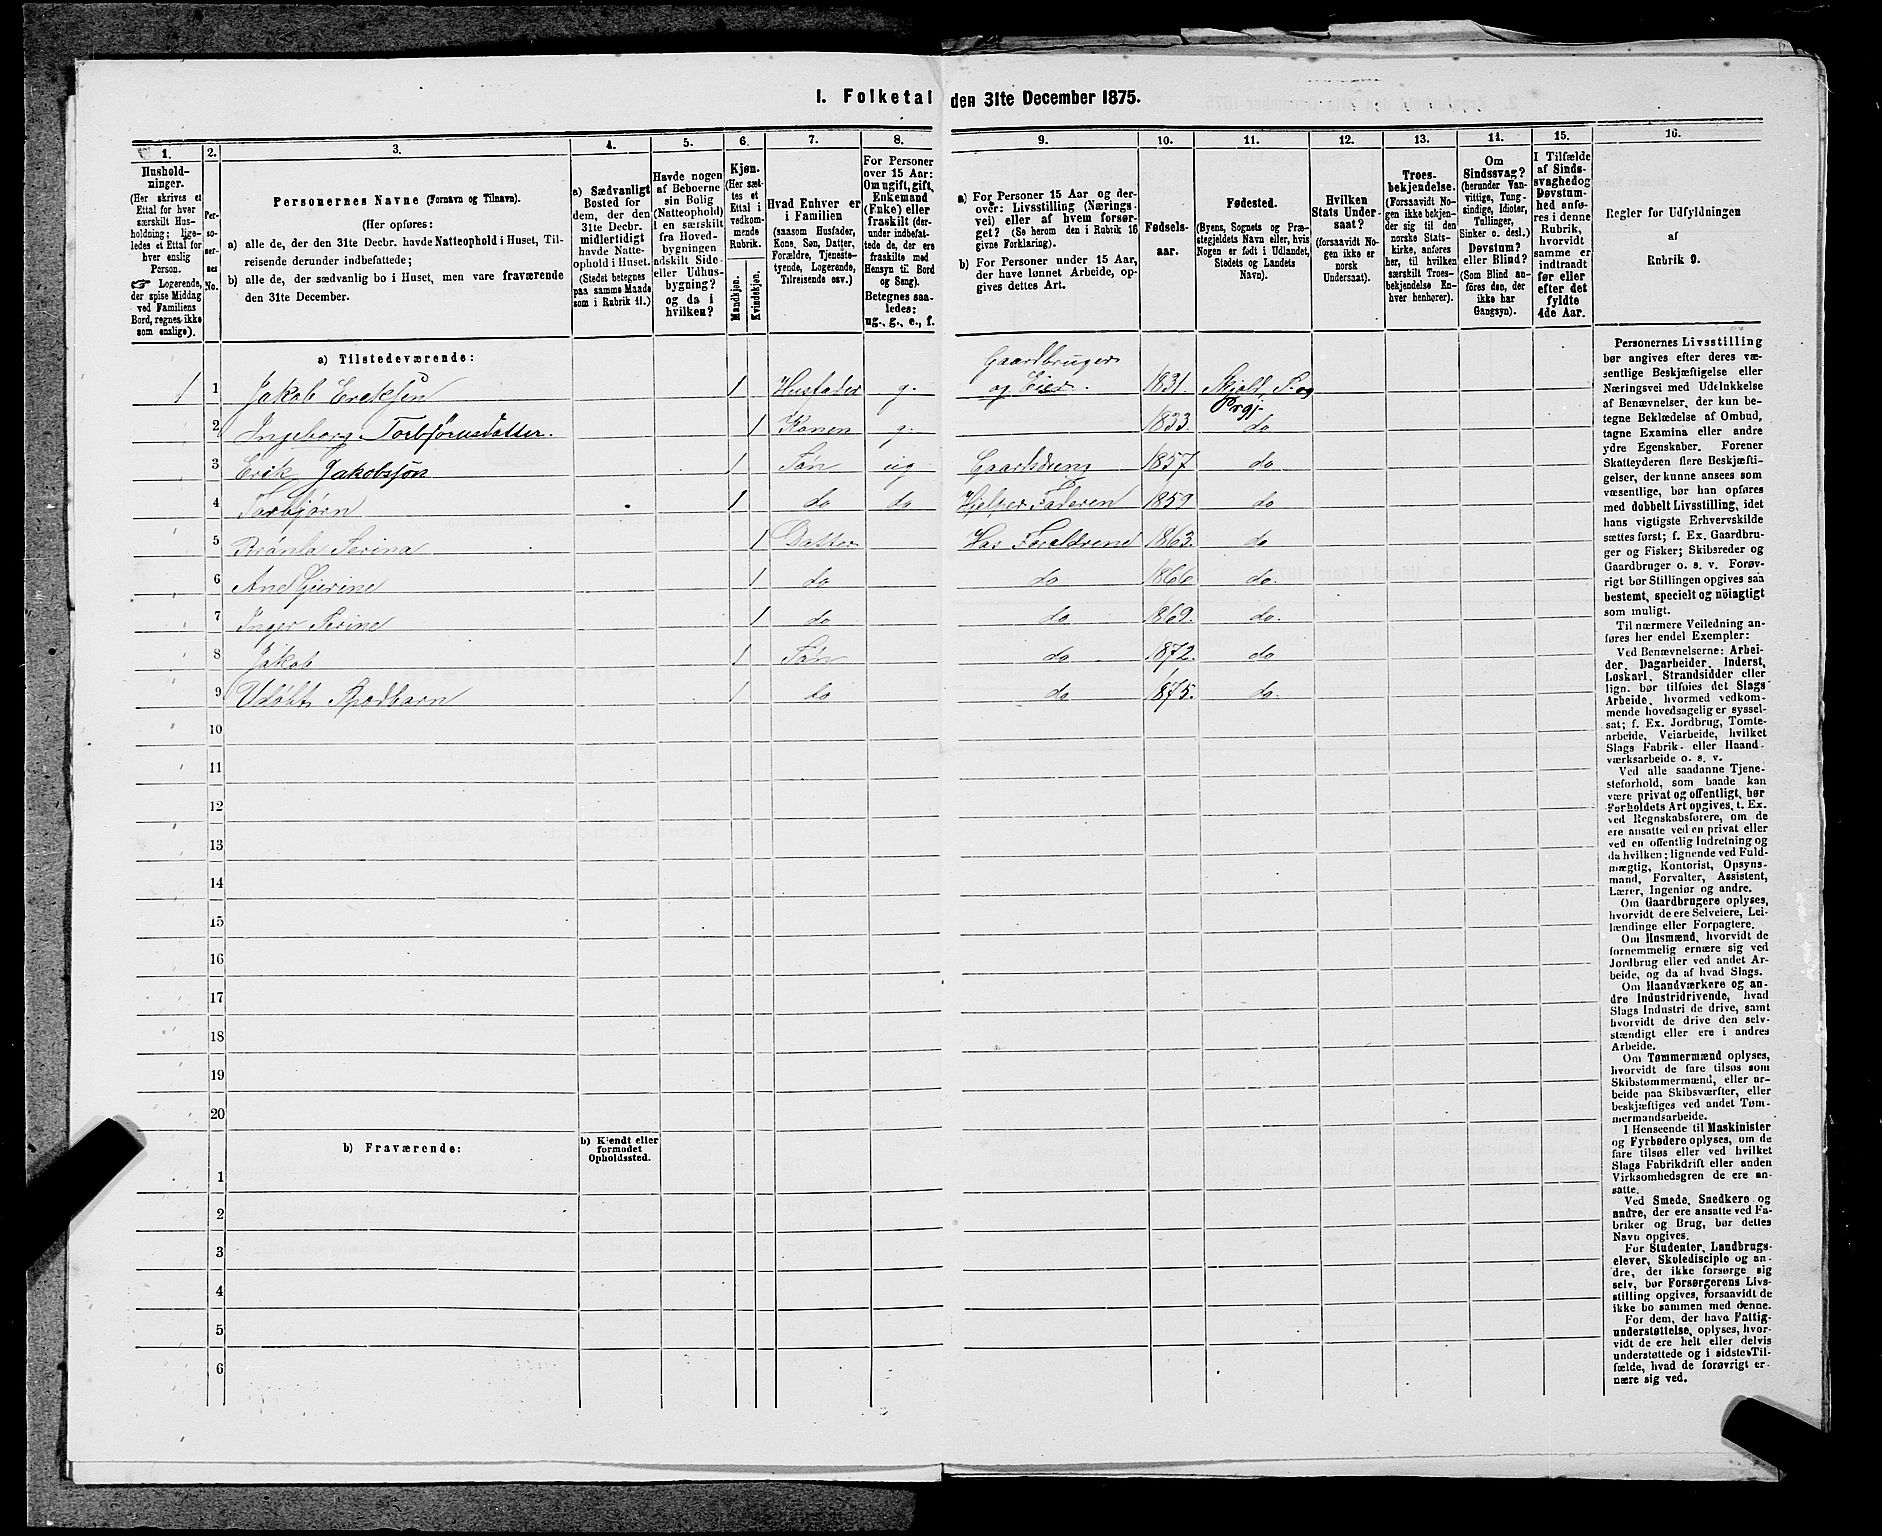 I. Folketal den 31te December 1875.
1. 2. 3. 4. 5. 6. 7. 8. 9. 10. 11. 12. 13. 14. 15. 16.
Husholdninger.
(Her skrives et
Ettal for hver
særskilt Husholdning;
ligeledes et Ettal for
hver enslig
Person.
☞ Logerende,
der spise Middag
ved Familiens
Bord, regnes ikke
som enslige).
Personernes No.
Personernes Navne (Fornavn og Tilnavn).
(Her opføres:
a) alle de, der den 31te Decbr. havde Natteophold i Huset, Tilreisende derunder indbefattede;
b) alle de, der sædvanlig bo i Huset, men vare fraværende
den 31te December.
a) Sædvanligt
Bosted for
dem, der den
31te Decbr.
midlertidigt
havde Natteophold i Huset.
(Stedet betegnes
paa samme Maade
som i Rubrik 11.)
Havde nogen
af Beboerne
sin Bolig
(Natteophold)
i en særskilt
fra Hovedbygningen
adskilt Side-
eller Udhusbygning?
og da i
hvilken?
Kjøn.
(Her sættes et
Ettal i
vedkommende
Rubrik.
Mandkjøn.
Kvindekjøn.
Hvad Enhver er
i Familien
(saasom Husfader,
Kone, Søn, Datter,
Forældre, Tjenestetyende, Logerende,
Tilreisende osv.)
For Personer
over 15 Aar:
Om ugift, gift,
Enkemand
(Enke) eller
fraskilt (derunder indbefattede de, der ere
fraskilte med
Hensyn til Bord
og Seng).
Betegnes saaledes:
ug., g., e., f.
a) For Personer 15 Aar og derover: Livsstilling (Næringsvei) eller af hvem forsørget? (Se herom den i Rubrik 16
givne Forklaring).
b) For Personer under 15 Aar,
der have lønnet Arbeide, opgives dettes Art.
Fødselsaar.
Fødested.
(Byens, Sognets og Præstegjeldets Navn eller, hvis
Nogen er født i Udlandet,
Stedets og Landets
Navn).
Hvilken
Stats Undersaat?
(forsaavidt Nogen ikke er
norsk
Undersaat).
Troesbekjendelse.
(Forsaavidt Nogen ikke bekjender sig til den
norske Statskirke, anføres
her, til hvilken
særskilt Troesbekjendelse Enhver henhører).
Om
Sindssvag?
(herunder Vanvittige, Tungsindige, Idioter,
Tullinger,
Sinker o. desl.)
Døvstum?
eller Blind?
(Som Blind anføres den, der
ikke har
Gangsyn).
I Tilfælde
af Sindssvaghed og
Døvstumhed anføres i denne
Rubrik,
hvorvidt
samme er
indtraadt
før eller
efter det
fyldte
4de Aar.
Regler for Udfyldningen
af
Rubrik 9.
a) Tilstedeværende:
1 1 Jakob Eriksen 1 Husfader g. Gaardbruger og Eier. 1831. Skjold, S. og Prgj.
2 Ingeborg Torbjørnsdatter. 1 Konen g. 1833. do
3 Erik Jakobssøn 1 Søn ug Gaardsdreng 1857 do
4 Torbjørn 1 do do Hjelper Faderen 1859 do
5 Serina 1 Datter Hos Forældrene 1863. do
6 Ane 1 do do 1866 do.
7 Inger Serine 1 do do 1869. do.
8 Jakob 1 Søn do 1872. do
9 Udøbt Spædbarn 1 do do 1875. do.
10
11
12
13
14
15
16
17
18
19
20
b) Fraværende:
b) Kjendt eller
formodet
Opholdssted.
1
2
3
4
5
6
Personernes Livsstilling
bør angives efter deres væsentlige Beskjæftigelse eller
Næringsvei med Udelukkelse
af Benævnelser, der kun betegne Beklædelse af Ombud,
tagne Examina eller andre
ydre Egenskaber. Forener
Skatteyderen flere Beskjæftigelser, der kunne ansees som
væsentlige, bør han opføres
med dobbelt Livsstilling, idet
hans vigtigste Erhvervskilde
sættes først; f. Ex. Gaardbruger og Fisker; Skibsreder og
Gaardbruger o. s. v. Forøvrigt bør Stillingen opgives saa
bestemt, specielt og nöiagtigt
som muligt.
Til nærmere Veiledning anføres her endel Exempler:
Ved Benævnelserne: Arbeider, Dagarbeider, Inderst,
Løskarl, Strandsidder eller
lign. bør tilføies det Slags
Arbeide, hvormed vedkommende hovedsagelig er sysselsat; f. Ex. Jordbrug, Tomtearbeide, Veiarbeide, hvilket
Slags Fabrik- eller Haandværksarbeide o. s. v.
Ved alle saadanne Tjenesteforhold, som baade kan
være privat og offentligt, bør
Forholdets Art opgives, t. Ex.
ved Regnskabsførere, om de
ere ansatte ved en privat eller
ved en offentlig Indretning og
da hvilken; lignende ved Fuldmægtig, Kontorist, Opsynsmand, Forvalter, Assistent,
Lærer, Ingeniør og andre.
Om Gaardbrugere oplyses,
hvorvidt de ere Selveiere, Leilændinge eller Forpagtere.
Om Husmænd, hvorvidt de
fornemmelig ernære sig ved
Jordbrug eller ved andet Arbeide, og da af hvad Slags.
Om Haandværkere og andre Industridrivende, hvad
Slags Industri de drive, samt
hvorvidt de drive den selvstændigt eller ere i andres
Arbeide.
Om Tømmermænd oplyses,
hvorvidt de fare tilsøs som
Skibstømmermænd, eller arbeide paa Skibsværfter, eller
beskjæftiges ved andet Tømmermandsarbeide.
I Henseende til Maskinister
og Fyrbødere oplyses, om de
fare tilsøs eller ved hvilket
Slags Fabrikdrift eller anden
Virksomhedsgren de ere ansatte.
Ved Smede, Snedkere og
andre, der ere ansatte ved Fabriker og Brug, bør dettes
Navn opgives.
For Studenter, Landbrugselever, Skoledisciple og andre, der ikke forsørge sig
selv, bør Forsørgerens Livsstilling opgives, forsaavidt de
ikke bo sammen med denne.
For dem, der have Fattigunderstøttelse, oplyses, hvorvidt de ere helt eller delvis
understøttede og i sidste Tilfælde, hvad de forøvrigt ernære sig ved.